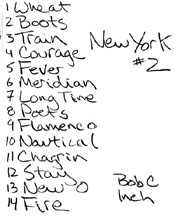 1 Wheat
2 Boots
3 Train
4 Courage
5 Fever
6 Meridian
7 Long Time
8 Poets
9 Flamenco
10 Nautical
11 Chagrin
12 Stay
13 New O
14 Fire
New York
#2
Bob C
inch